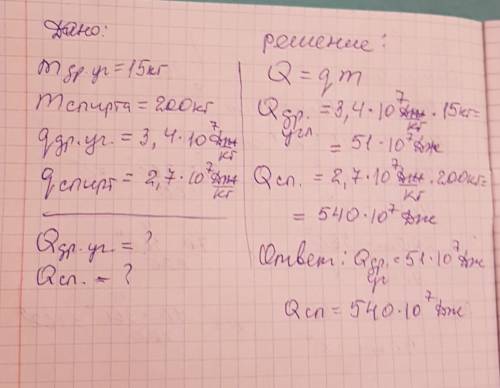 Дано:
mдр.уг=15кг
mспирта=200кг
qдр.уг.=3,4·10⁷Дж/кг
qспирт=2,7·10⁷Дж/кг
Qдр.уг.=?
Qсп.-?
решение:
Q=qm
Qдр.угл=3,4·10⁷Дж/кг·15кг=
=51·10⁷Дж
Qсп.=2,7·10⁷Дж/кг·200кг=
=540·10⁷Дж
Ответ: Qдр.уг=51·10⁷Дж
Qсп=540·10⁷Дж